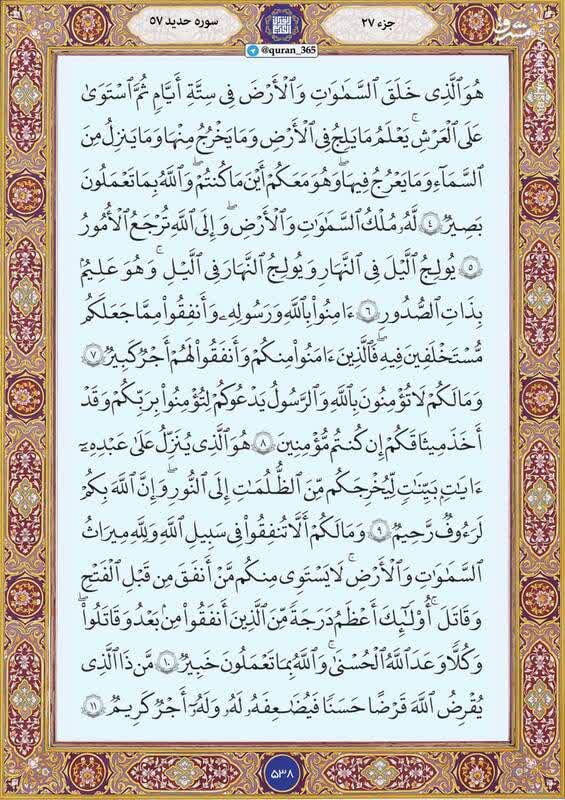 جزء ۲۷
سوره حدید ۵۷
@quran_365
هُوَ ٱلَّذِى خَلَقَ ٱلسَّمَـٰوَٰتِ وَٱلْأَرْضَ فِى سِتَّةِ أَيَّامٍ ثُمَّ ٱسْتَوَىٰ
عَلَى ٱلْعَرْشِ ۚ يَعْلَمُ مَا يَلِجُ فِى ٱلْأَرْضِ وَمَا يَخْرُجُ مِنْهَا وَمَا يَنزِلُ مِنَ
ٱلسَّمَآءِ وَمَا يَعْرُجُ فِيهَا ۖ وَهُوَ مَعَكُمْ أَيْنَ مَا كُنتُمْ ۚ وَٱللَّهُ بِمَا تَعْمَلُونَ
بَصِيرٌ ۝٤ لَّهُۥ مُلْكُ ٱلسَّمَـٰوَٰتِ وَٱلْأَرْضِ ۚ وَإِلَى ٱللَّهِ تُرْجَعُ ٱلْأُمُورُ
۝٥ يُولِجُ ٱلَّيْلَ فِى ٱلنَّهَارِ وَيُولِجُ ٱلنَّهَارَ فِى ٱلَّيْلِ ۚ وَهُوَ عَلِيمٌۢ
بِذَاتِ ٱلصُّدُورِ ۝٦ ءَامِنُوا۟ بِٱللَّهِ وَرَسُولِهِۦ وَأَنفِقُوا۟ مِمَّا جَعَلَكُم
مُّسْتَخْلَفِينَ فِيهِ ۖ فَٱلَّذِينَ ءَامَنُوا۟ مِنكُمْ وَأَنفَقُوا۟ لَهُمْ أَجْرٌ كَبِيرٌ ۝٧
وَمَا لَكُمْ لَا تُؤْمِنُونَ بِٱللَّهِ ۙ وَٱلرَّسُولُ يَدْعُوكُمْ لِتُؤْمِنُوا۟ بِرَبِّكُمْ وَقَدْ
أَخَذَ مِيثَاقَكُمْ إِن كُنتُم مُّؤْمِنِينَ ۝٨ هُوَ ٱلَّذِى يُنَزِّلُ عَلَىٰ عَبْدِهِۦٓ
ءَايَـٰتٍۭ بَيِّنَـٰتٍ لِّيُخْرِجَكُم مِّنَ ٱلظُّلُمَـٰتِ إِلَى ٱلنُّورِ ۚ وَإِنَّ ٱللَّهَ بِكُمْ
لَرَءُوفٌ رَّحِيمٌ ۝٩ وَمَا لَكُمْ أَلَّا تُنفِقُوا۟ فِى سَبِيلِ ٱللَّهِ وَلِلَّهِ مِيرَٰثُ
ٱلسَّمَـٰوَٰتِ وَٱلْأَرْضِ ۚ لَا يَسْتَوِى مِنكُم مَّنْ أَنفَقَ مِن قَبْلِ ٱلْفَتْحِ
وَقَـٰتَلَ ۚ أُو۟لَـٰٓئِكَ أَعْظَمُ دَرَجَةً مِّنَ ٱلَّذِينَ أَنفَقُوا۟ مِنۢ بَعْدُ وَقَـٰتَلُوا۟ ۚ
وَكُلًّا وَعَدَ ٱللَّهُ ٱلْحُسْنَىٰ ۚ وَٱللَّهُ بِمَا تَعْمَلُونَ خَبِيرٌ ۝١٠ مَّن ذَا ٱلَّذِى
يُقْرِضُ ٱللَّهَ قَرْضًا حَسَنًا فَيُضَـٰعِفَهُۥ لَهُۥ وَلَهُۥٓ أَجْرٌ كَرِيمٌ ۝١١
۵۳۸